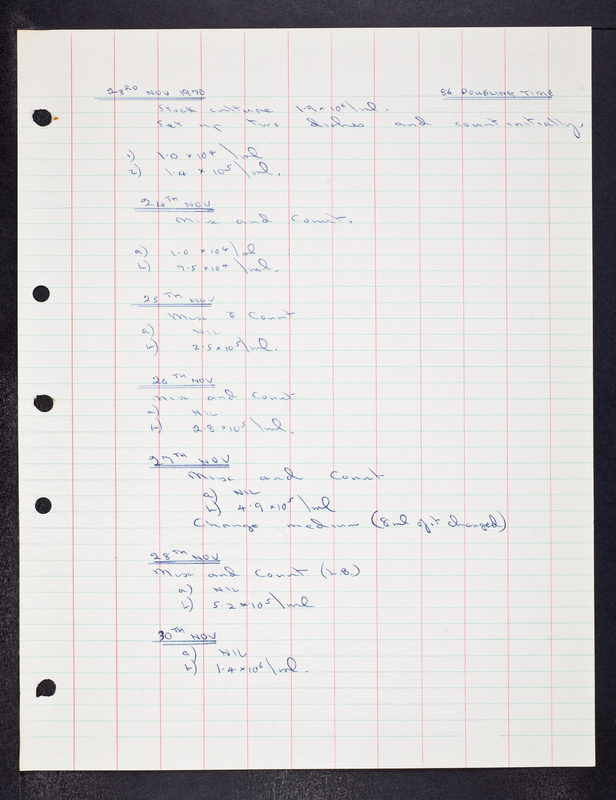 23RD NOV 1970 86 DOUBLING TIME
Stock culture 1.9 × 10⁶\ml.
Set up two dishes and count initially.
1) 1.0 × 10⁴\ml
2) 1.4 × 10⁵\ml.
24TH NOV
Mix and Count.
a) 1.0 × 10⁴\ml
b) 7.5 × 10⁴\ml.
25TH NOV
Mix & Count
a) NIL
b) 2.5 × 10⁵\ml.
26TH NOV
Mix and Count
a) NIL
b) 2.8 × 10⁵\ml.
27TH NOV
Mix and Count
a) NIL
b) 4.9 × 10⁵\ml
Change medium (8ml of it changed)
28TH NOV
Mix and Count (L.B.)
a) NIL
b) 5.2 × 10⁵\ml
30TH NOV
a) NIL
b) 1.4 × 10⁶\ml.